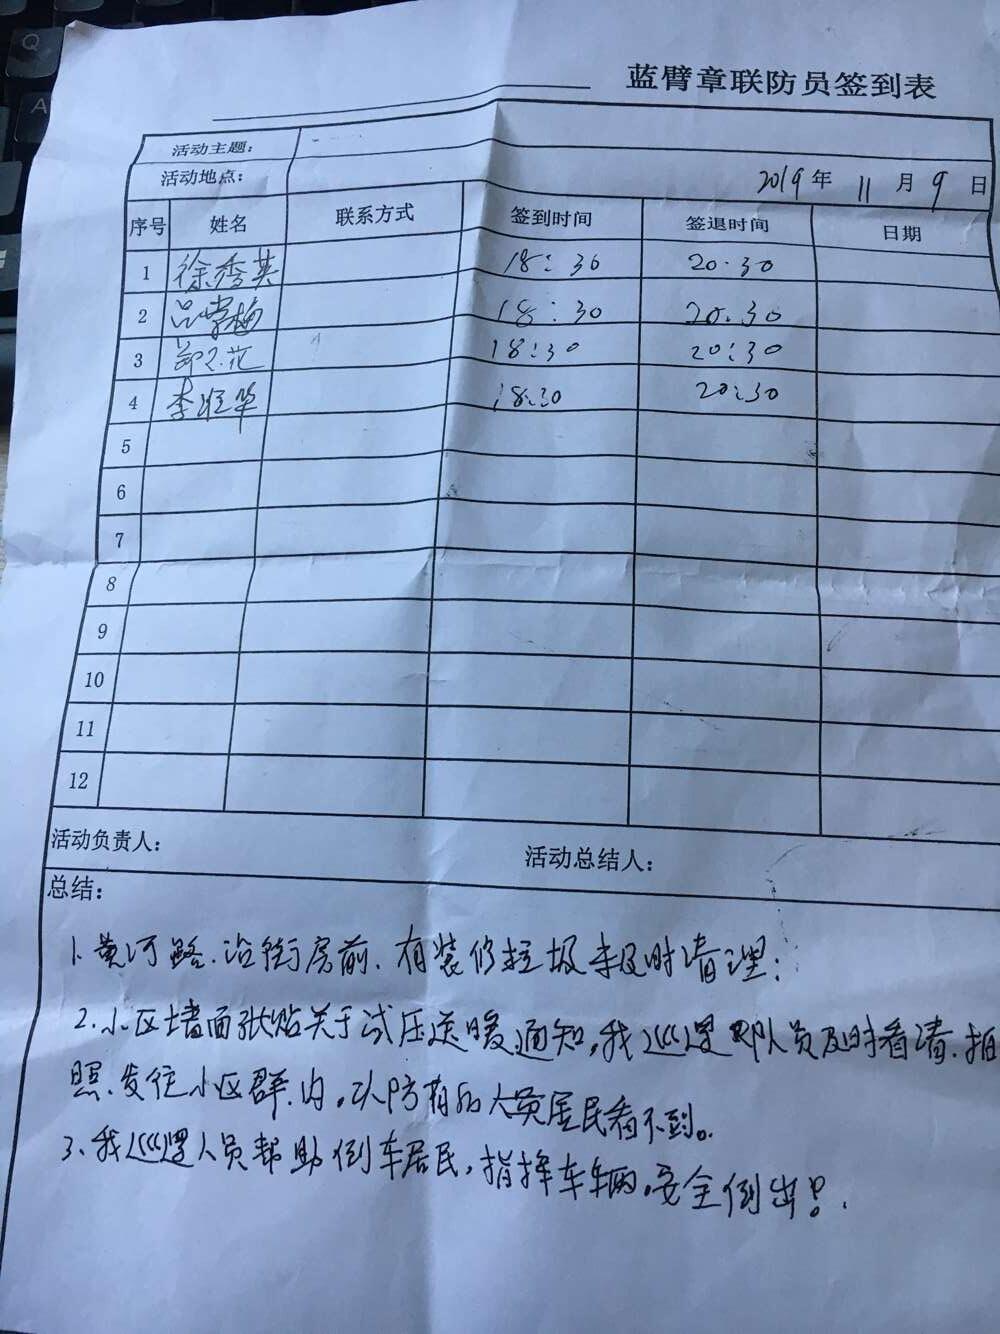 蓝臂章联防员签到表
活动主题：
活动地点： 2019年 11月 9日
序号 姓名 联系方式 签到时间 签退时间 日期
1 徐秀英 18:30 20:30
2 吕 梅 18:30 20:30
3 花 18:30 20:30
4 李 华 18:30 20:30
5
6
7
8
9
10
11
12
活动负责人： 活动总结人：
总结：
1.黄河路.沿街房前.有装修垃圾未及时清理;
2.小区墙面张贴关于试压送暖通知,我巡逻队员及时看清.拍
照.发往小区群.内.以防有的人员居民看不到。
3、我巡逻人员帮助倒车居民,指挥车辆,安全倒出!